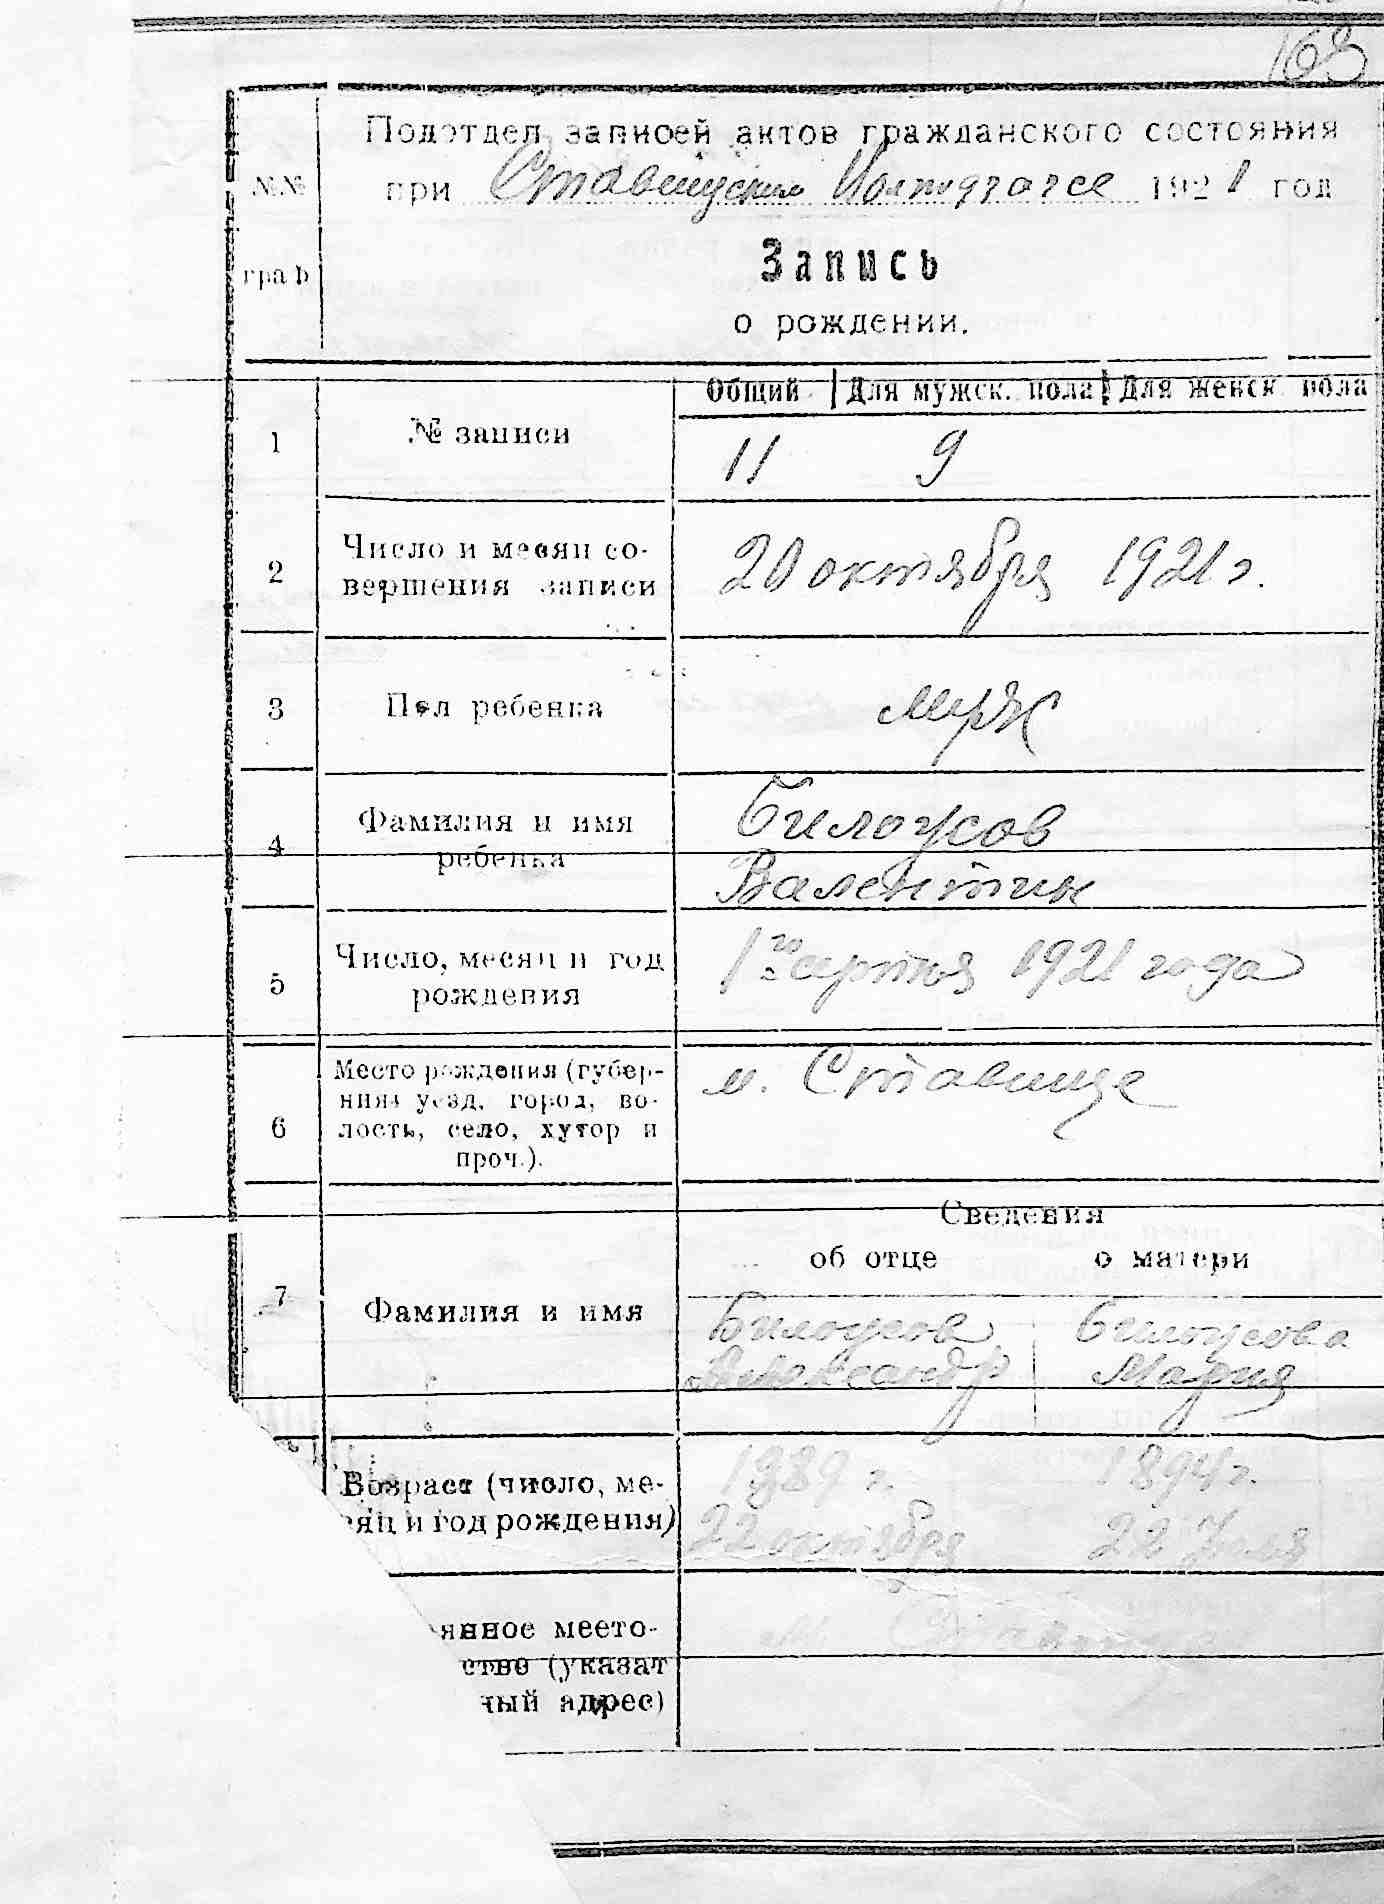 168
Подотдел записей актов гражданского состояния
при Ставищском 1921 год
№№
граф
Запись
о рождении.
Общий Для мужск. пола Для женск. пола
1 № записи 11 9
2 Число и месяц со-
вершения записи 20 октября 1921 г.
3 Пол ребенка муж
4 Фамилия и имя Билоусов
ребенка Валентин
5 Число, месяц и год 1го серпня 1921 года
рождения
6 Место рождения (губер- м. Ставище
ния уезд, город, во-
лость, село, хутор и
проч.).
Сведения
об отце о матери
7 Фамилия и имя Билоусов Билоусова
Александр Мария
Возраст (число, ме- 1889 г. 1894 г.
сяц и год рождения) 22 октября 22 Июля
янное место- м.
ство (указат
ный адрес)